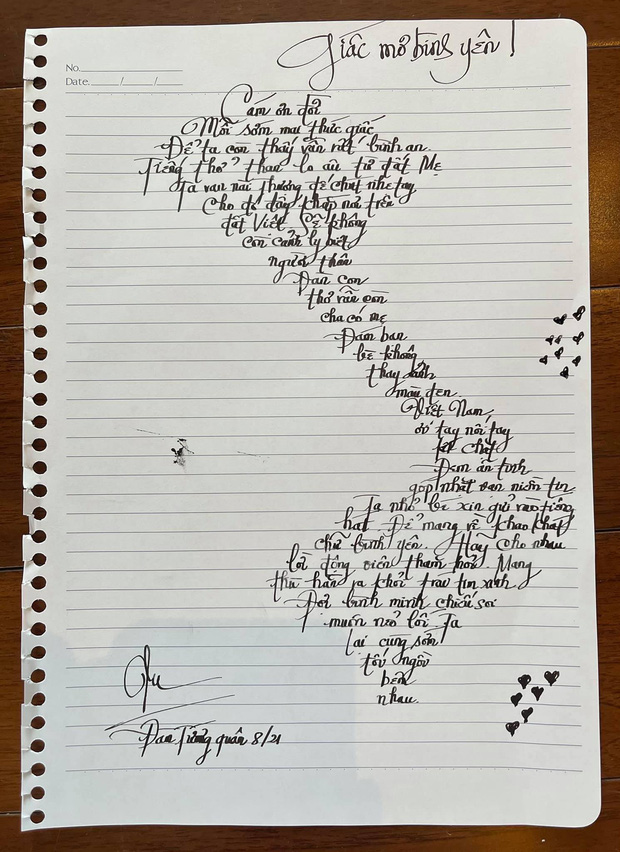 Giấc mơ bình yên!
No.
Date / /
Cám ơn đời
Mỗi sớm mai thức giấc
Để ta còn thấy vẫn rất bình an.
Tiếng thở than lo âu từ đất Mẹ
Ta van nài thượng đế chút nhẹ tay
Cho đó đây khắp nơi trên
đất Việt Sẽ không
còn cảnh ly biệt
người thân
Đàn con
thơ vẫn còn
cha có mẹ
Đám bạn
bè không
thay ảnh
màu đen
Việt Nam
ơi tay nối tay
kết chặt
Đem ân tình
góp nhặt vạn niềm tin
Ta nhỏ bé xin gửi vào tiếng
hát Để mang về khao khát
chữ bình yên. Hãy cho nhau
lời động viên thăm hỏi. Mang
thù hằn ra khỏi trái tim xinh
Đợi bình minh chiếu soi
muôn nẻo lối Ta
lại cùng sớm
tối ngồi
bên
nhau.
Đan Trường quân 8/21